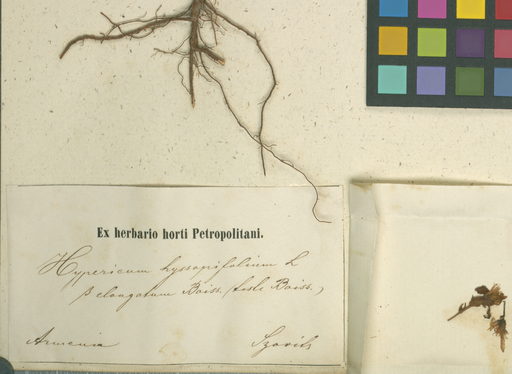 Ex herbario horti Petropolitani.
Hypericum hyssopifolium L
β elongatum Boiss. (teste Boiss.)
Armenia Szovits